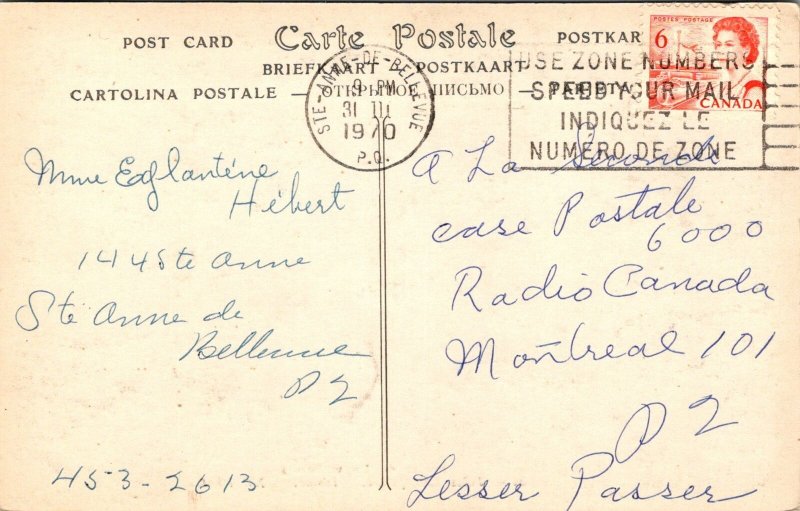 POST CARD Carte Postale POSTKAR
BRIEFKAART POSTKAART
CARTOLINA POSTALE — ОТКРЫТОЕ ПИСЬМО —
STE-ANNE-DE-BELLEVUE
9 PM
31 III
1970
P.Q.
USE ZONE NUMBERS
SPEED YOUR MAIL
INDIQUEZ LE
NUMÉRO DE ZONE
POSTES POSTAGE
6
CANADA
Mme Eglantine
Hébert
144 Ste Anne
Ste Anne de
Bellevue
P Q
453-2613
A La Seconde
case Postale
6000
Radio Canada
Montreal 101
P Q
Lesser Passer